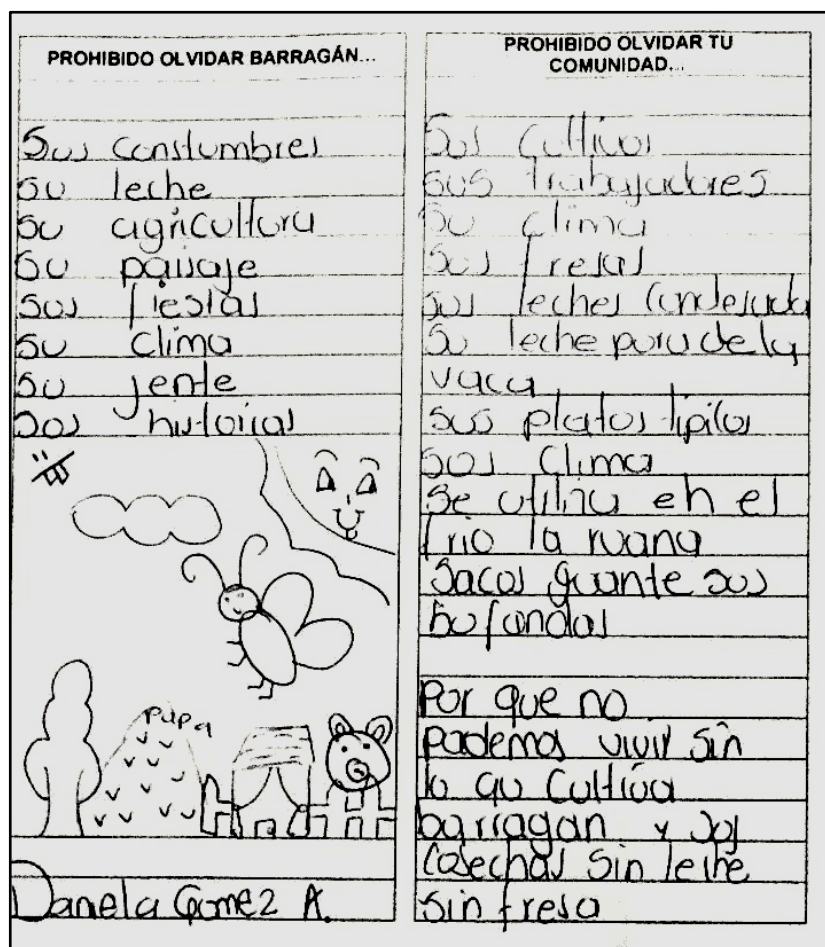 PROHIBIDO OLVIDAR BARRAGÁN...
Sus constumbres
su leche
su agricultura
su paisaje
sus fiestas
su clima
su jente
sus historias
papa
Daniela Gomez A.
PROHIBIDO OLVIDAR TU
COMUNIDAD...
Sus Cultivos
sus trabajadores
su clima
sus fresas
sus leches Condesada
Su leche pura de la
vaca
sus platos tipicos
sus Clima
se utiliza en el
frio la ruana
Sacos guante sus
bufandas
Por que no
podemos vivir sin
lo qu Cultiva
barragan y sus
Cosechas sin leche
sin fresa